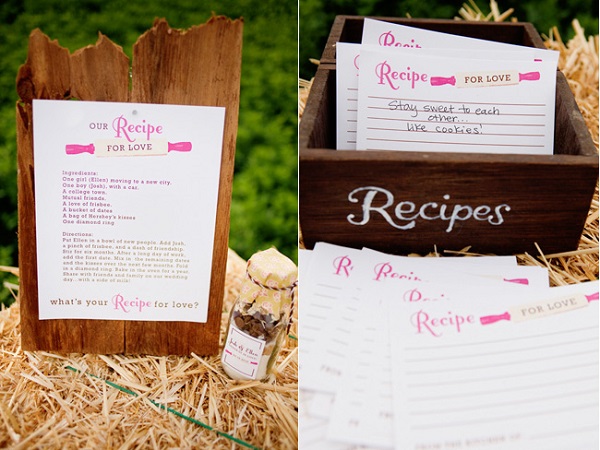 OUR Recipe
FOR LOVE
Ingredients:
One girl (Ellen) moving to a new city.
One boy (Josh), with a car.
A college town.
Mutual friends.
A love of frisbee.
A bucket of dates
A bag of Hershey's kisses
One diamond ring
Directions:
Put Ellen in a bowl of new people. Add Josh,
a pinch of frisbee, and a dash of friendship.
Stir for six months. After a long day of work,
add the first date. Mix in the remaining dates
and the kisses over the next few months. Fold
in a diamond ring. Bake in the oven for a year.
Share with friends and family on our wedding
day...with a side of milk!
what's your Recipe for love?
Josh & Ellen
Recipe
Recipe FOR LOVE
Stay sweet to each
other...
like cookies!
Recipes
Recipe
Recipe
Recipe
Recipe FOR LOVE
FROM THE KITCHEN OF: